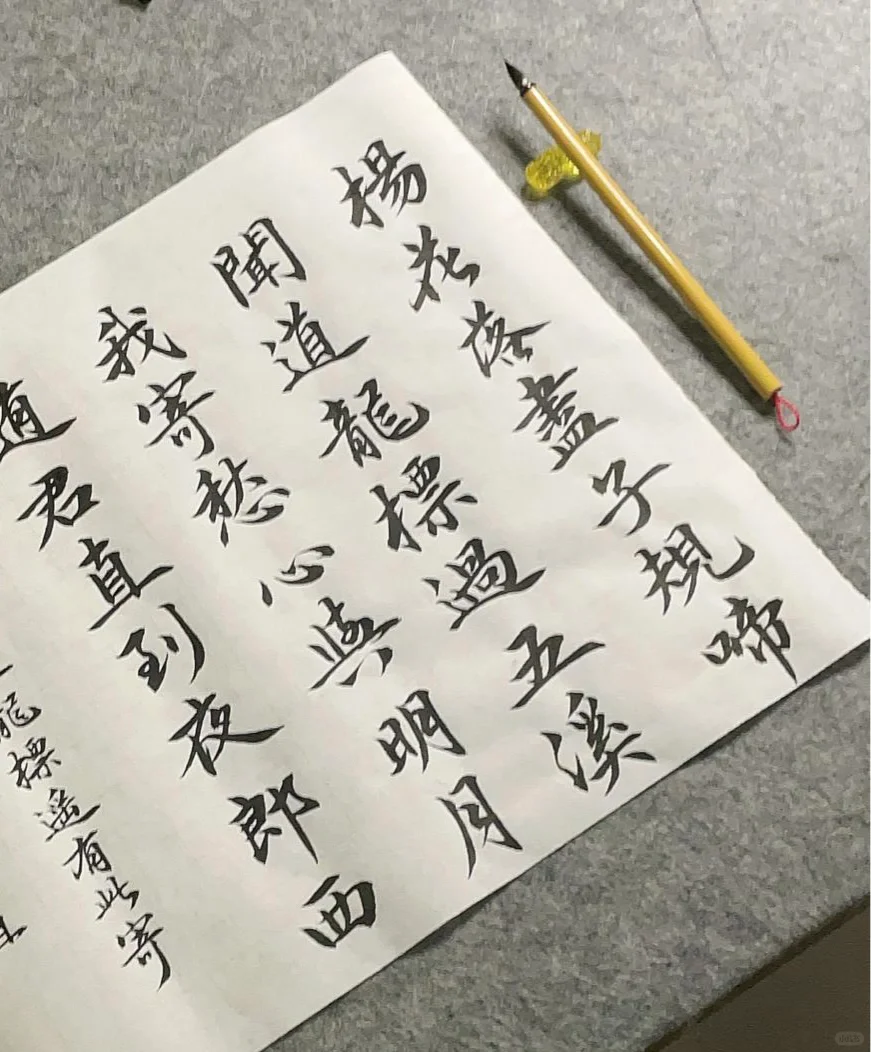 楊花落盡子規啼
聞道龍標過五溪
我寄愁心與明月
君直到夜郎西
龍標遙有此寄